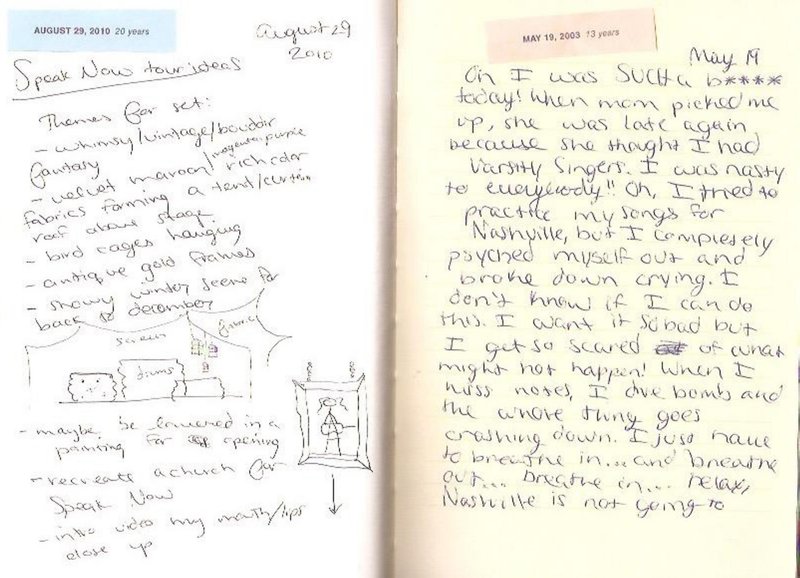 AUGUST 29, 2010 20 years
August 29
2010
Speak Now tour ideas
Themes for set:
- whimsy/vintage/boudoir
fantasy
- velvet maroon/magenta/purple rich color
fabrics forming a tent/curtain
roof above stage.
- bird cages hanging
- antique gold frames
- snowy winter scene for
back to december
fabric
screen
drums
- maybe be lowered in a
painting for opening
- recreate a church for
Speak Now
- intro video my mouth/lips
close up
MAY 19, 2003 13 years
May 19
Oh I was SUCH a b****
today! When mom picked me
up, she was late again,
because she thought I had
Varsity Singers. I was nasty
to everybody!! Oh, I tried to
practice my songs for
Nashville, but I completely
psyched myself out and
broke down crying. I
don't know if I can do
this. I want it so bad but
I get so scared of what
might not happen! When I
miss notes, I dive bomb and
the whole thing goes
crashing down. I just have
to breathe in... and breathe
out... breathe in... relax,
Nashville is not going to